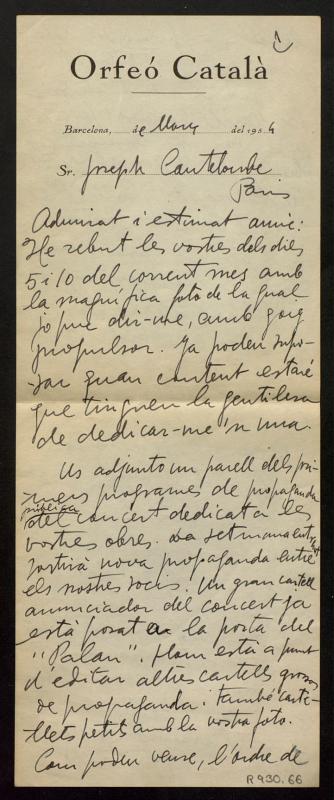 Orfeó Català
Barcelona, de Març del 1956
Sr. Joseph Canteloube
Paris
Admirat i estimat amic:
He rebut les vostres dels dies
5 i 10 del corrent mes amb
la magnífica foto de la qual
jo puc dir-me, amb goig
propulsor. Ja podeu supo-
sar quan content estaré
que tingueu la gentilesa
de dedicar-me'n una.
Us adjunto un parell dels pri-
mers programes de propaganda
pública
del concert dedicat a les
vostres obres. La setmana entrant
sortirà nova propaganda entre
els nostres socis. Un gran cartell
anunciador del concert ja
està posat a la porta del
"Palau". Hom està a punt
d'editar altres cartells grossos
de propaganda. i també carte-
llets petits amb la vostra foto.
Com podeu veure, l'ordre de
R 930.66